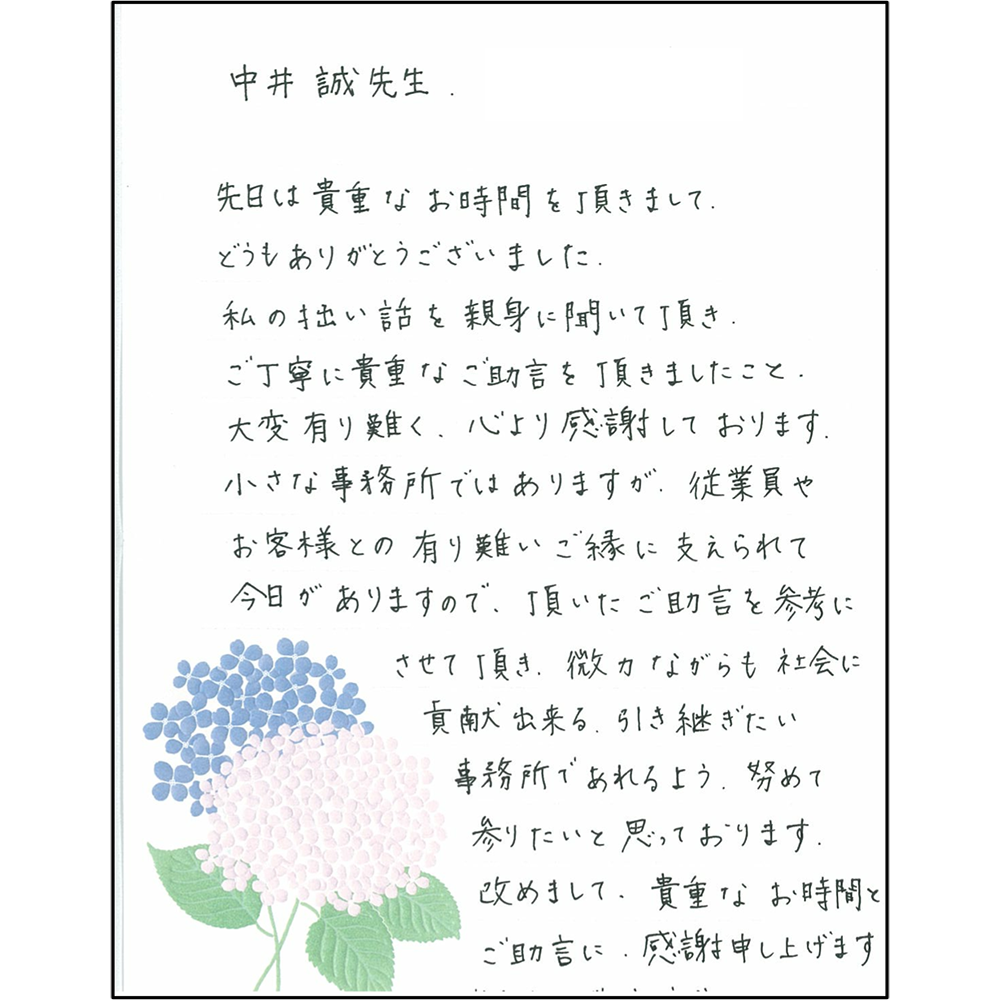 中井 誠先生.
先日は貴重なお時間を頂きまして、
どうもありがとうございました.
私の拙い話を親身に聞いて頂き、
ご丁寧に貴重なご助言を頂きましたこと、
大変有り難く、心より感謝しております.
小さな事務所ではありますが、従業員や
お客様との有り難いご縁に支えられて
今日がありますので、頂いたご助言を参考に
させて頂き、微力ながらも社会に
貢献出来る、引き継ぎたい
事務所であれるよう、努めて
参りたいと思っております.
改めまして、貴重なお時間と
ご助言に、感謝申し上げます